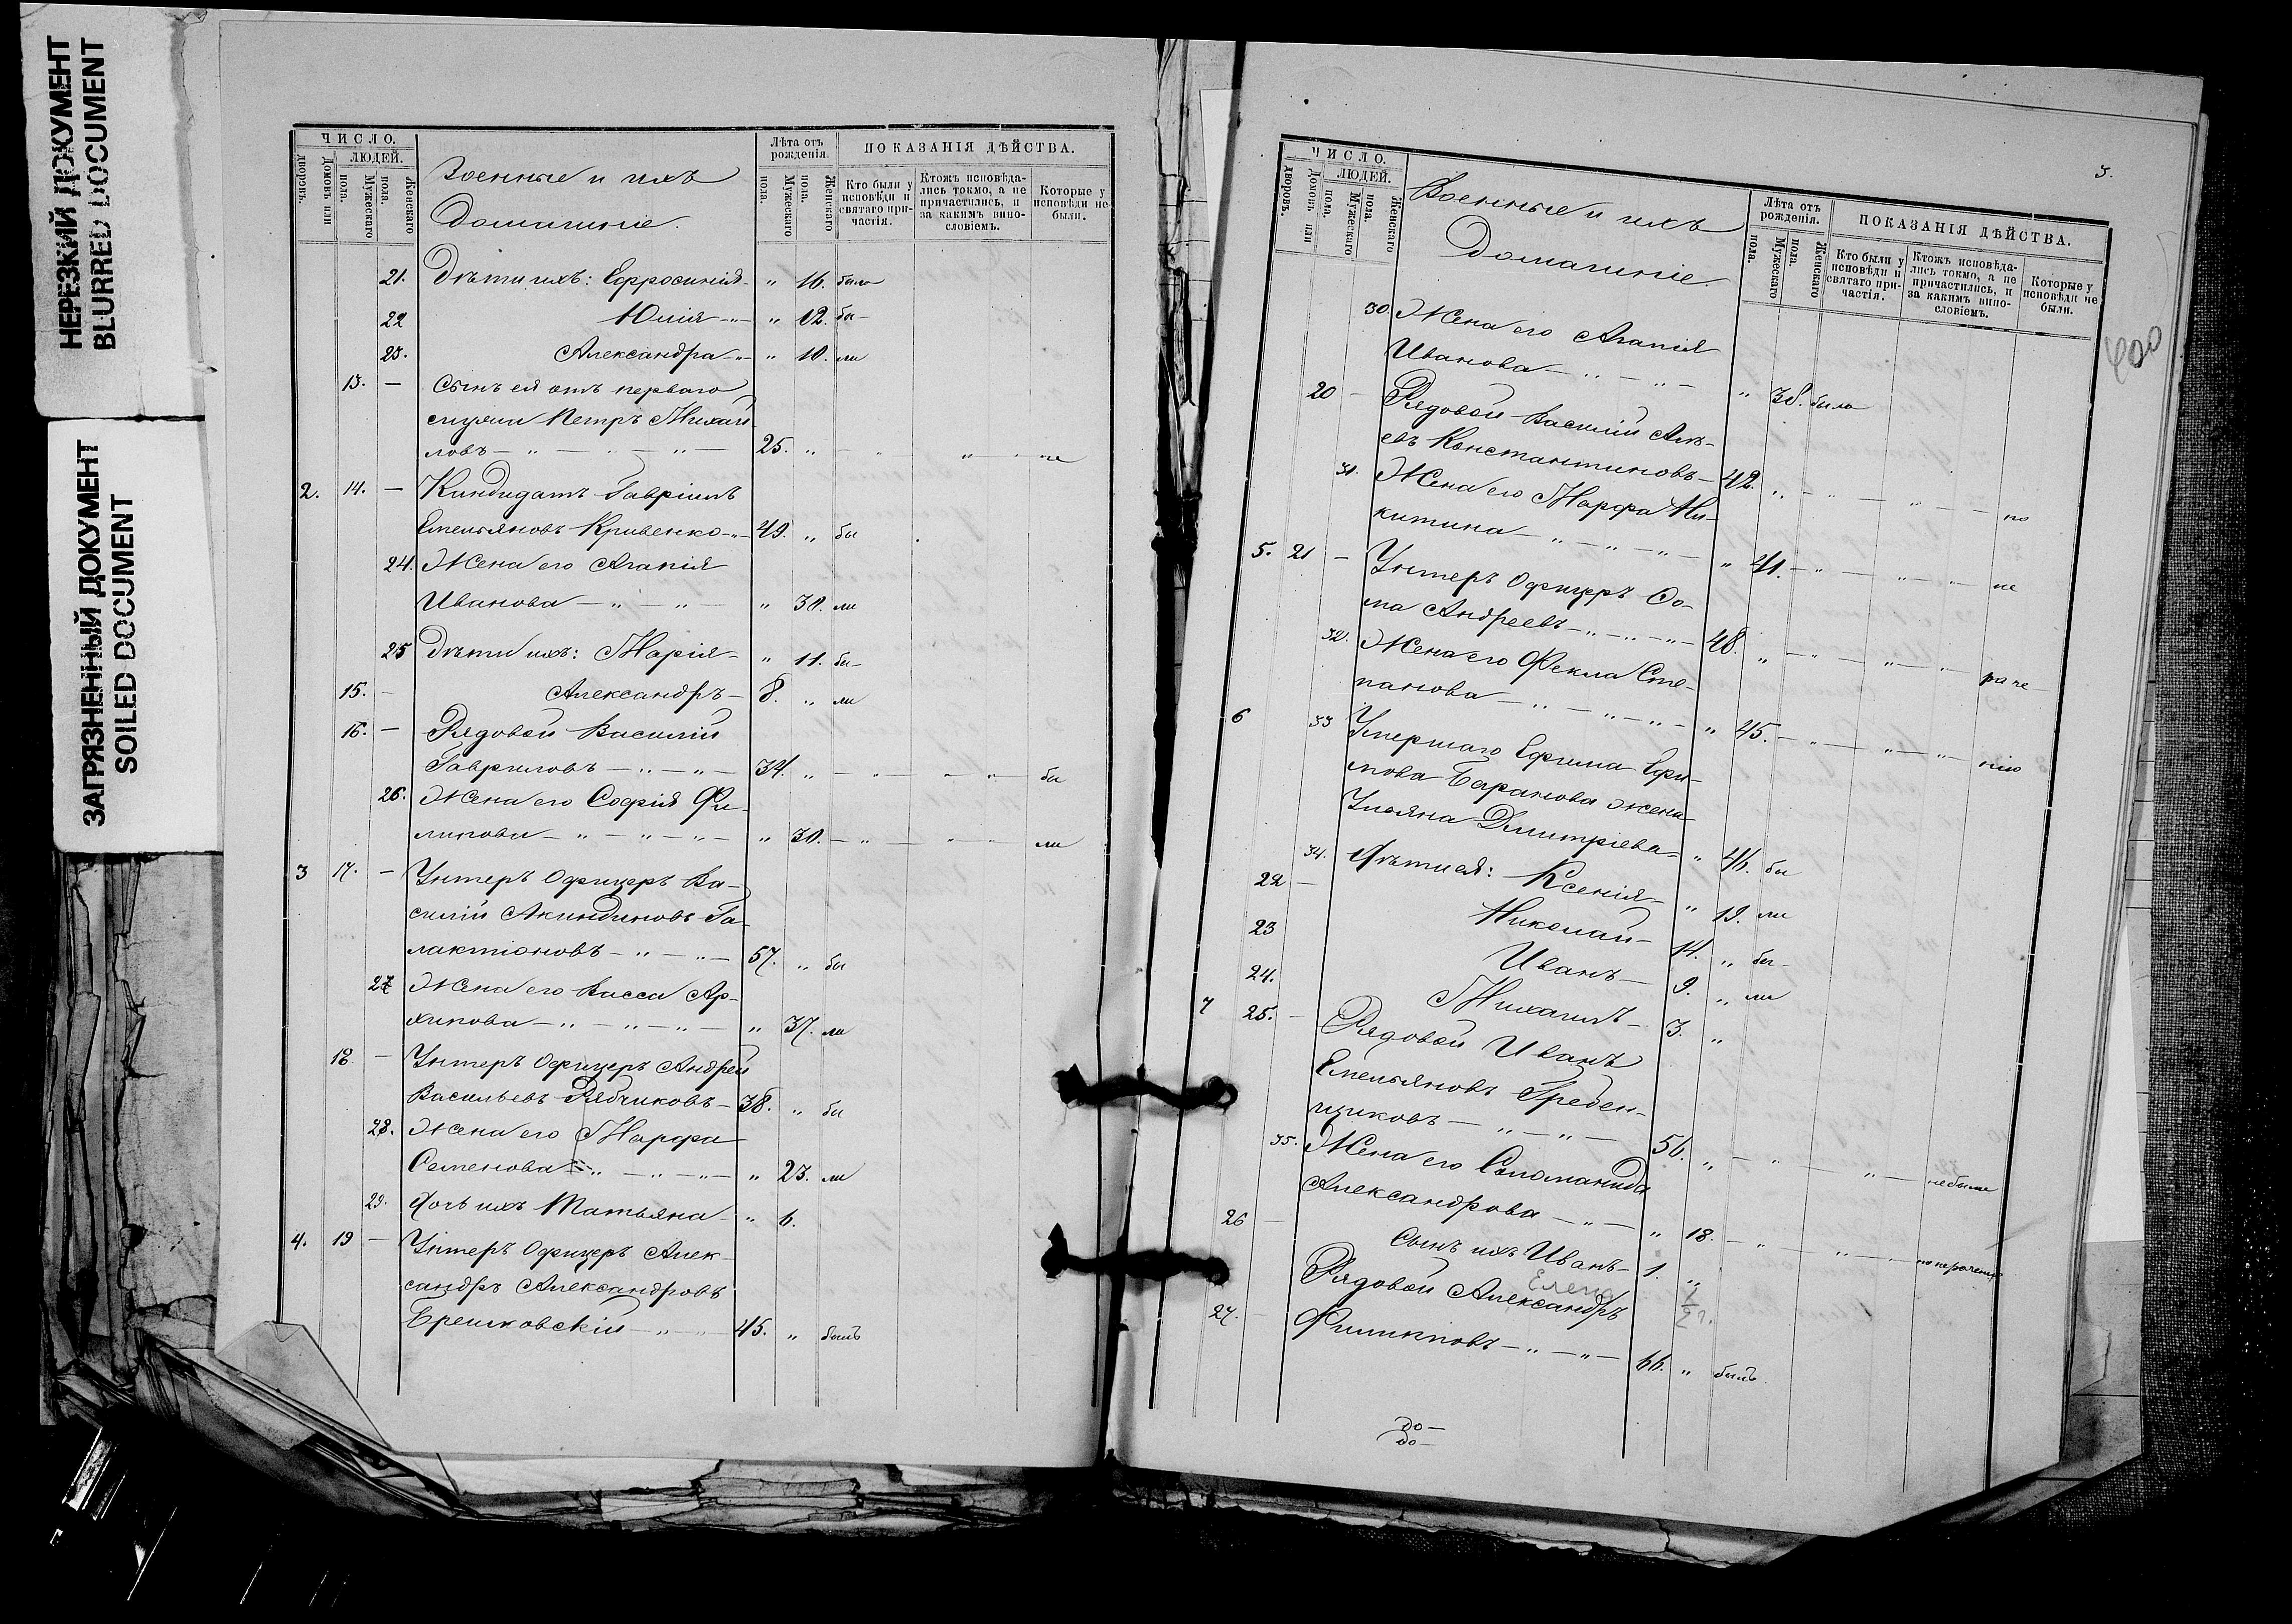 НЕРЕЗКИЙ ДОКУМЕНТ
BLURRED DOCUMENT
ЗАГРЯЗНЕННЫЙ ДОКУМЕНТ
SOILED DOCUMENT
ЧИСЛО.
ЛЮДЕЙ.
Домовъ или дворовъ.
Мужескаго пола.
Женскаго пола.
Военные и ихъ
Домашніе.
Лѣта отъ рожденія.
Мужескаго пола.
Женскаго пола.
ПОКАЗАНІЯ ДѢЙСТВА.
Кто были у исповѣди и святаго причастія.
Ктожъ исповѣдались токмо, а не причастились, и за какимъ винословіемъ.
Которые у исповѣди не были.
21. Дѣти ихъ: Ефросинія - " 16. была
22 Юлія - " - " 12. бы-
23. Александра - " - " 10. ли
13. — Сынъ ея отъ перваго
мужа Петръ Михай
ловъ — " — " — " — 25. " — " " - не
2. 14. — Кандидатъ Гавріилъ
Емельяновъ Кривенко - " - 49. " бы
24. Жена его Агапія
Иванова — " — " — " 30. ли
25 Дѣти ихъ: Марія - " 11. бы-
15. — Александръ - 8. " ли
16. — Рядовой Василій
Гавриловъ — " — " — 34. " — " — " " — бы
26. Жена его Софія Фи-
липова — " — " — " — " 30. — " — " " — ли
3 17. — Унтеръ Офицеръ Ва-
силій Акиндиновъ Га-
лактіоновъ — " — " — 57. " бы
27 Жена его Васса Ар-
хипова — " — " — " — " 37. ли
18. — Унтеръ Офицеръ Андрей
Васильевъ Рябчиковъ - 38. " бы
28. Жена его Марфа
Семенова — " — " — " — " 23. ли
29. Дочь ихъ Татьяна - " 6.
4. 19 — Унтеръ Офицеръ Алек-
сандръ Александровъ
Брешковскій — " — " 45. " былъ
3.
600
ЧИСЛО.
ЛЮДЕЙ.
Домовъ или дворовъ.
Мужескаго пола.
Женскаго пола.
Военные и ихъ
Домашніе.
Лѣта отъ рожденія.
Мужескаго пола.
Женскаго пола.
ПОКАЗАНІЯ ДѢЙСТВА.
Кто были у исповѣди и святаго причастія.
Ктожъ исповѣдались токмо, а не причастились, и за какимъ винословіемъ.
Которые у исповѣди не были.
30. Жена его Агапія
Иванова — " — " — " 38. была
20 — Рядовой Василій
евъ Константиновъ - 42. " — " — " — по
31. Жена его Марфа Ни-
китина — " — " — " — " 41. — " — " — " не
5. 21 — Унтеръ Офицеръ Ѳо-
ма Андреевъ — " — " — " — 48. " — " — " — " раче
32. Жена его Фекла Сте-
панова — " — " — " — " 45. — " — " — " нію
6 33 Умершаго Ефима Ефи-
мова Баранова жена
Ульяна Димитріева - " 46. бы
34. Дѣти ея: Ксенія - " 19. ли
22 — Николай - 14. " бы-
23 Иванъ - 9. " ли
24. Михаилъ - 3. "
7 25. — Рядовой Иванъ
Емельяновъ Гребен-
щиковъ — " — " — 56. " — " — " — не были
35. Жена его Соломанида
Александрова — " — " 18. — " — " — по нерачению
26 — Сынъ ихъ Иванъ - 1. "
Елена 1/2 г.
27. Рядовой Александръ
Филипповъ — " — " — 66. " былъ
до —
до —